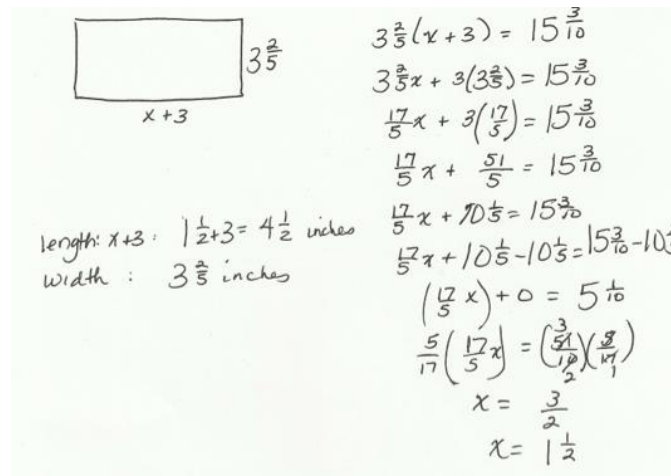 3 2/5
x+3
length: x+3: 1 1/2+3= 4 1/2 inches
width : 3 2/5 inches
3 2/5(x+3) = 15 3/10
3 2/5x + 3(3 2/5) = 15 3/10
17/5x + 3(17/5) = 15 3/10
17/5x + 51/5 = 15 3/10
17/5x + 10 1/5 = 15 3/10
17/5x + 10 1/5 - 10 1/5 = 15 3/10 - 10
(17/5 x) + 0 = 5 1/10
5/17(17/5x) = (51/10)(5/17)
3
2 1
x = 3/2
x = 1 1/2